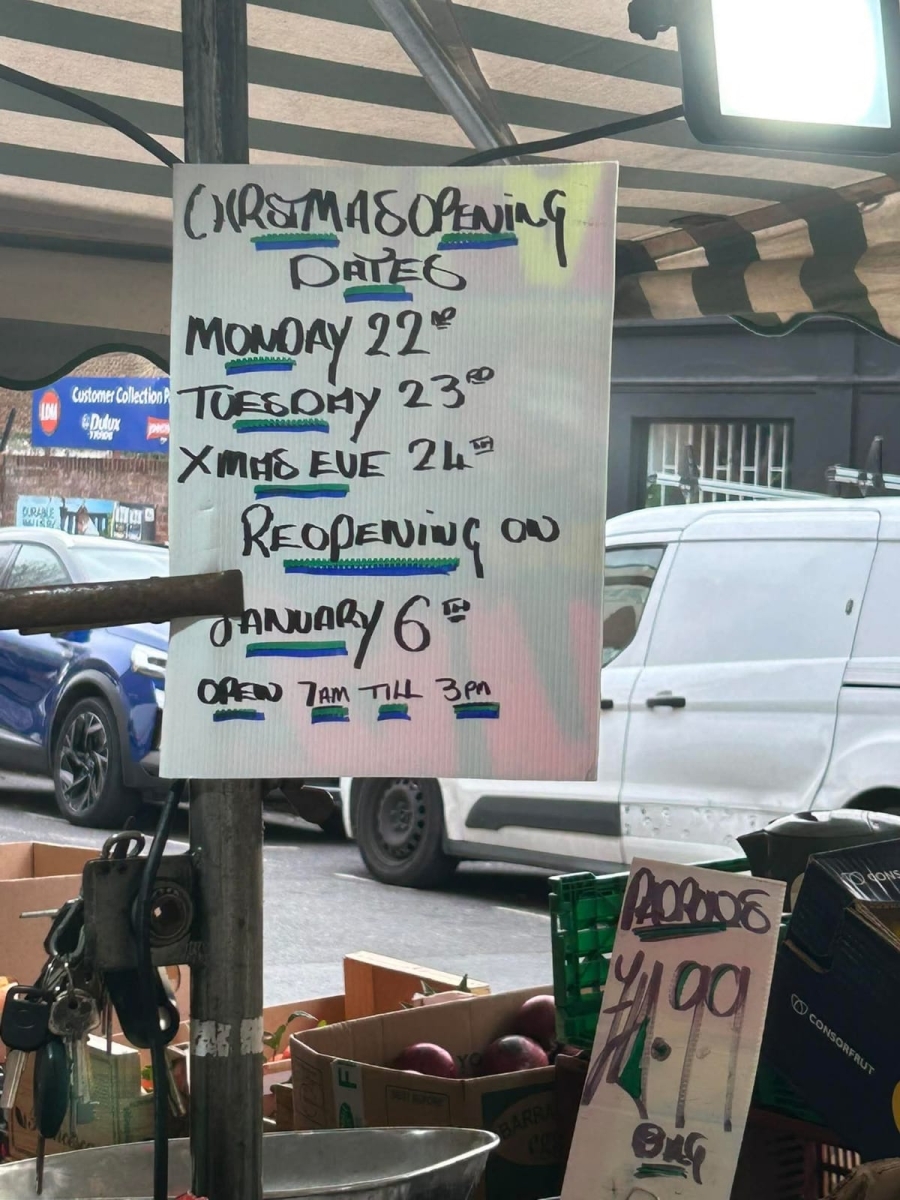 CHRSTMAS OPENING
DATES
MONDAY 22ND
TUESDAY 23RD
XMAS EVE 24TH
REOPENING ON
JANUARY 6TH
OPEN 7AM TILL 3PM
Customer Collection P
LDM
Dulux
TRADE
DURABLE
PADRONE
£1.99
BAG
CONSORFRUT
CONS